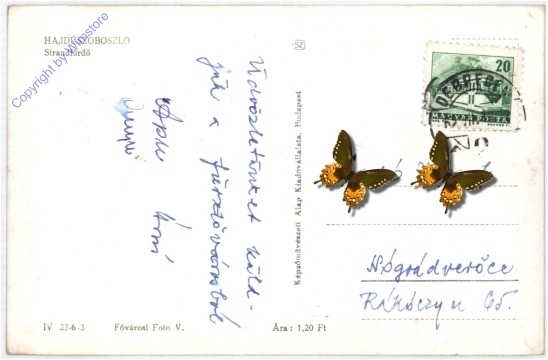 HAJDÚSZOBOSZLÓ
Strandfürdő
Copyright by Wimstore
Üdvözletünket küld-
jük a fürdővárosból
Apu Anyu
Képzőművészeti Alap Kiadóvállalata, Budapest
SZ
20
MAGYAR POSTA
DEBRECEN
Nógrádverőce
Rákóczy u 65.
IV 23-6-3
Fővárosi Foto V.
Ára: 1,20 Ft